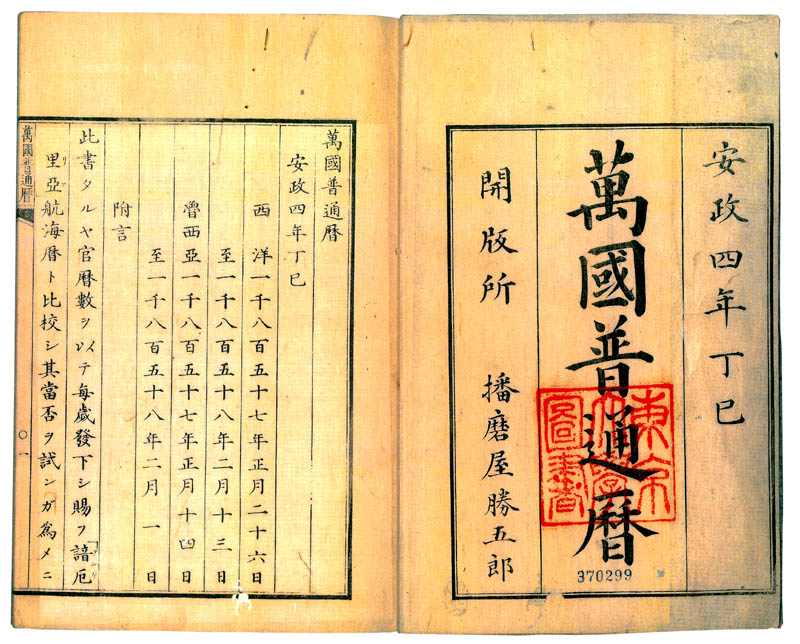 安政四年丁巳
萬國普通暦
370299
開版所　播磨屋勝五郎
萬國普通暦
安政四年丁巳
西洋一千八百五十七年正月二十六日
至一千八百五十八年二月十三日
魯西亞一千八百五十七年正月十四日
至一千八百五十八年二月一日
附言
此書タルヤ官暦數ヲ以テ每歲發下シ賜フ諳厄
里亞航海暦ト比校シ其當否ヲ試ンガ爲メニ
萬國普通暦
〇一